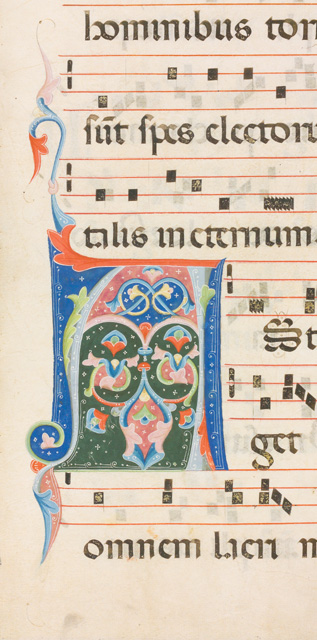 hominibus tor
sūt spes electoru
talis in eternum
St
get
omnem lacri m